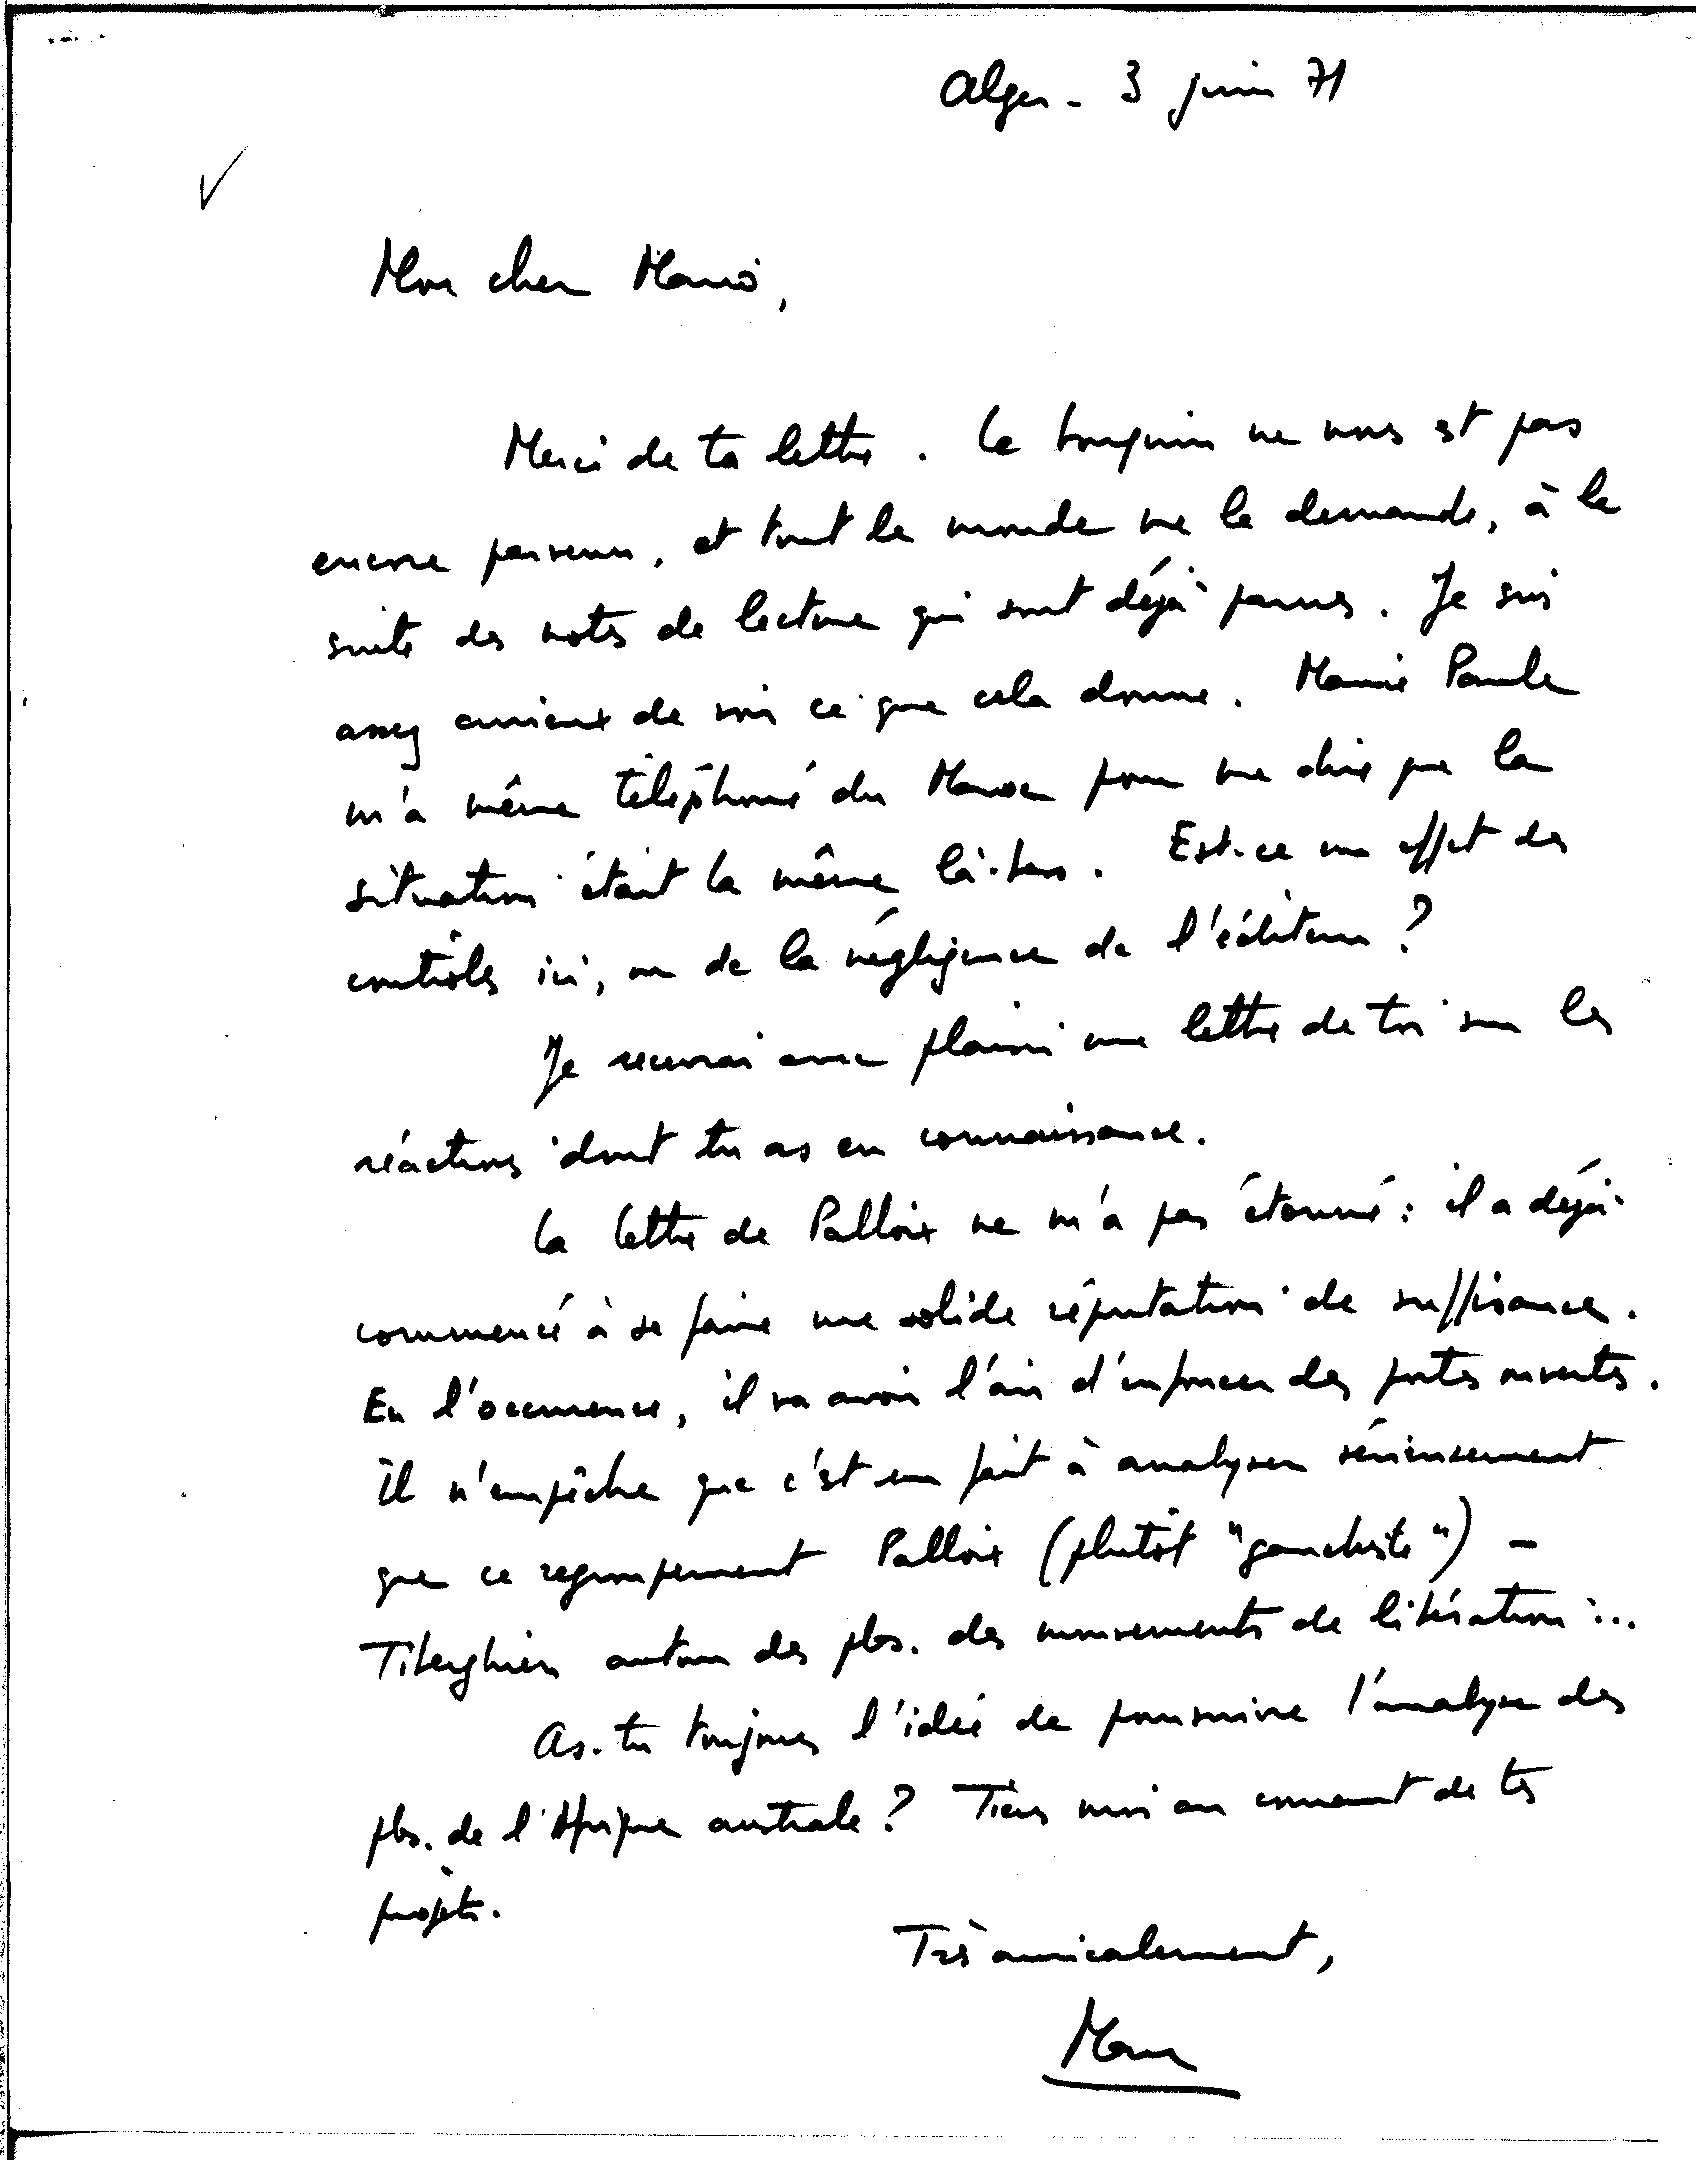 Alger - 3 juin 71
Mon cher Mario,
Merci de ta lettre. Le bouquin ne nous est pas
encore parvenu, et tout le monde me le demande, à la
suite des notes de lecture qui sont déjà parues. Je suis
assez curieux de voir ce que cela donne. Marie Paule
m'a même téléphoné du Maroc pour me dire que la
situation était la même là-bas. Est-ce un effet des
contrôles ici, ou de la négligence de l'éditeur ?
Je recevrai avec plaisir une lettre de toi sur les
réactions dont tu as eu connaissance.
La lettre de Palloix ne m'a pas étonné : il a déjà
commencé à se faire une solide réputation de suffisance.
En l'occurrence, il va avoir l'air d'enfoncer des portes ouvertes.
Il n'empêche que c'est un fait à analyser sérieusement
que ce regroupement Palloix (plutôt "gauchiste") -
Tiberghien autour des pbs. des mouvements de libération ...
As-tu toujours l'idée de poursuivre l'analyse des
pbs. de l'Afrique australe ? Tiens moi au courant de tes
projets.
Très amicalement,